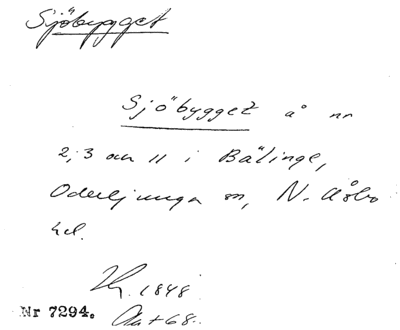 Sjöbygget
Sjöbygget å nr
2, 3 och 11 i Bälinge,
Oderljunga sn, N. Åsbo
hd.
1848
Nr 7294.